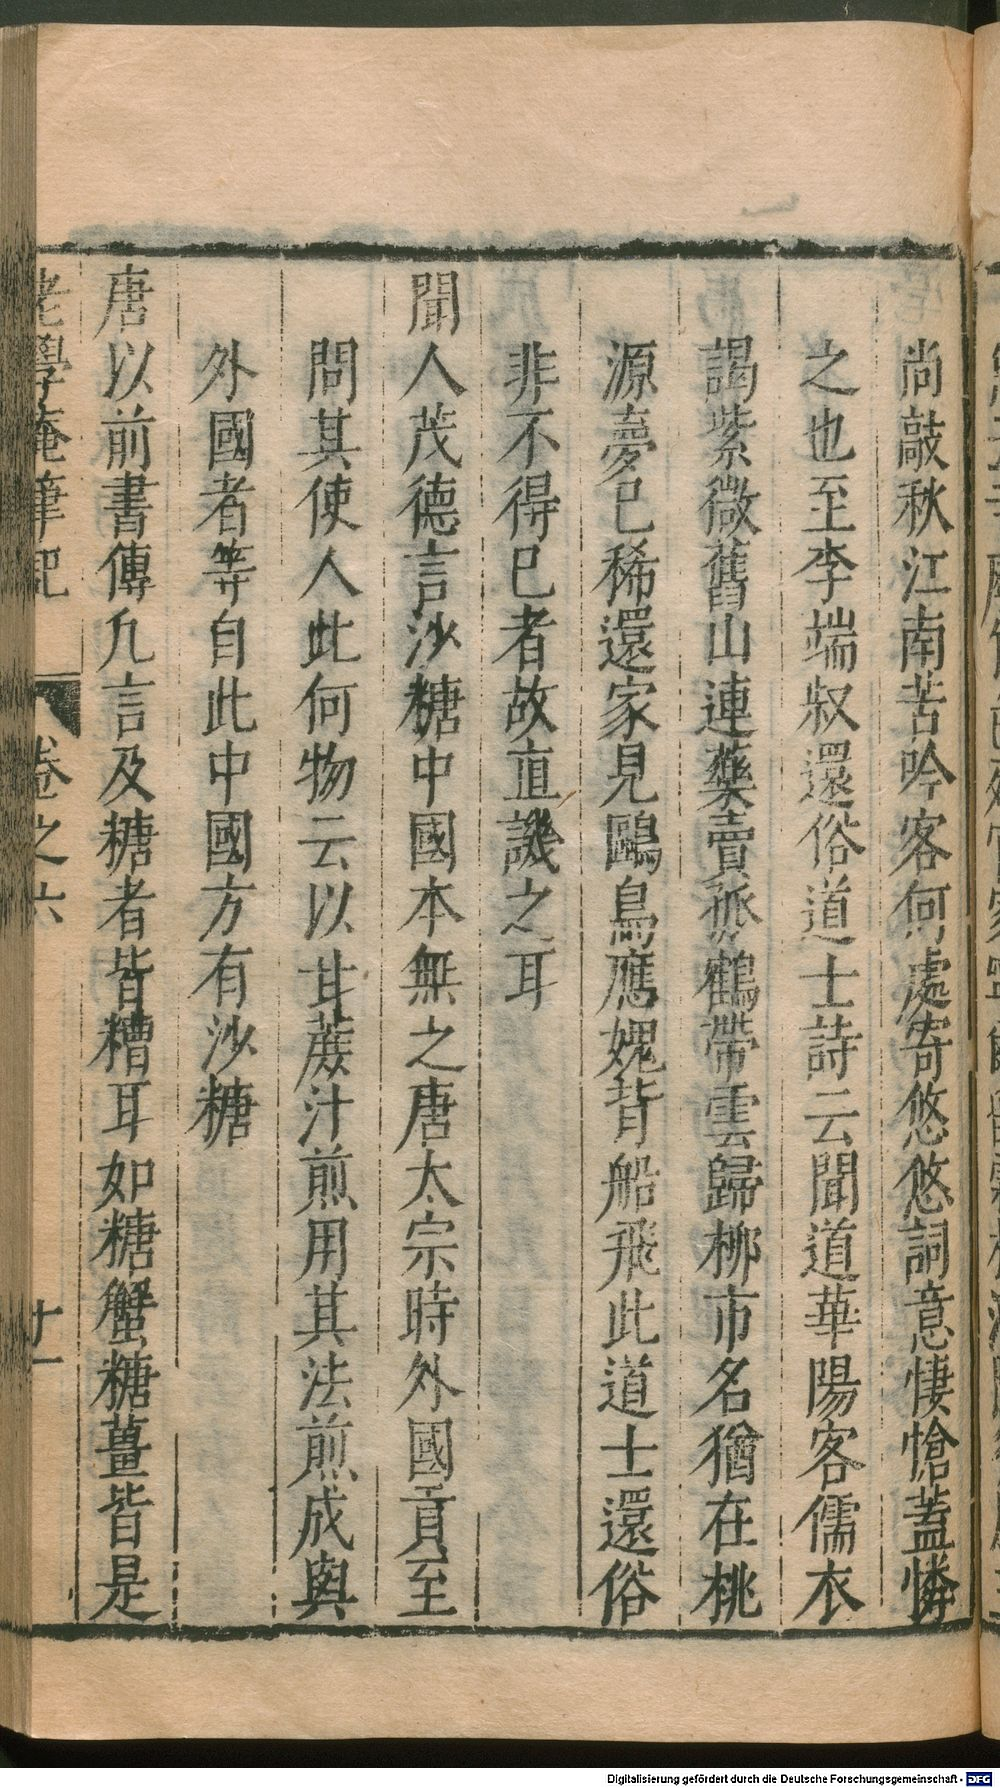 尚敲秋江南苦吟客何處寄悠悠詞意悽愴蓋憐
之也至李端叔還俗道士詩云聞道華陽客儒衣
謁紫微舊山連藥賣孤鶴帶雲歸柳市名猶在桃
源夢已稀還家見鷗鳥應媿背船飛此道士還俗
非不得已者故直譏之耳
聞人茂德言沙糖中國本無之唐太宗時外國貢至
問其使人此何物云以甘蔗汁煎用其法煎成與
外國者等自此中國方有沙糖
唐以前書傳凡言及糖者皆糟耳如糖蟹糖薑皆是
老學庵筆記 卷之六 十一
Digitalisierung gefördert durch die Deutsche Forschungsgemeinschaft - DFG